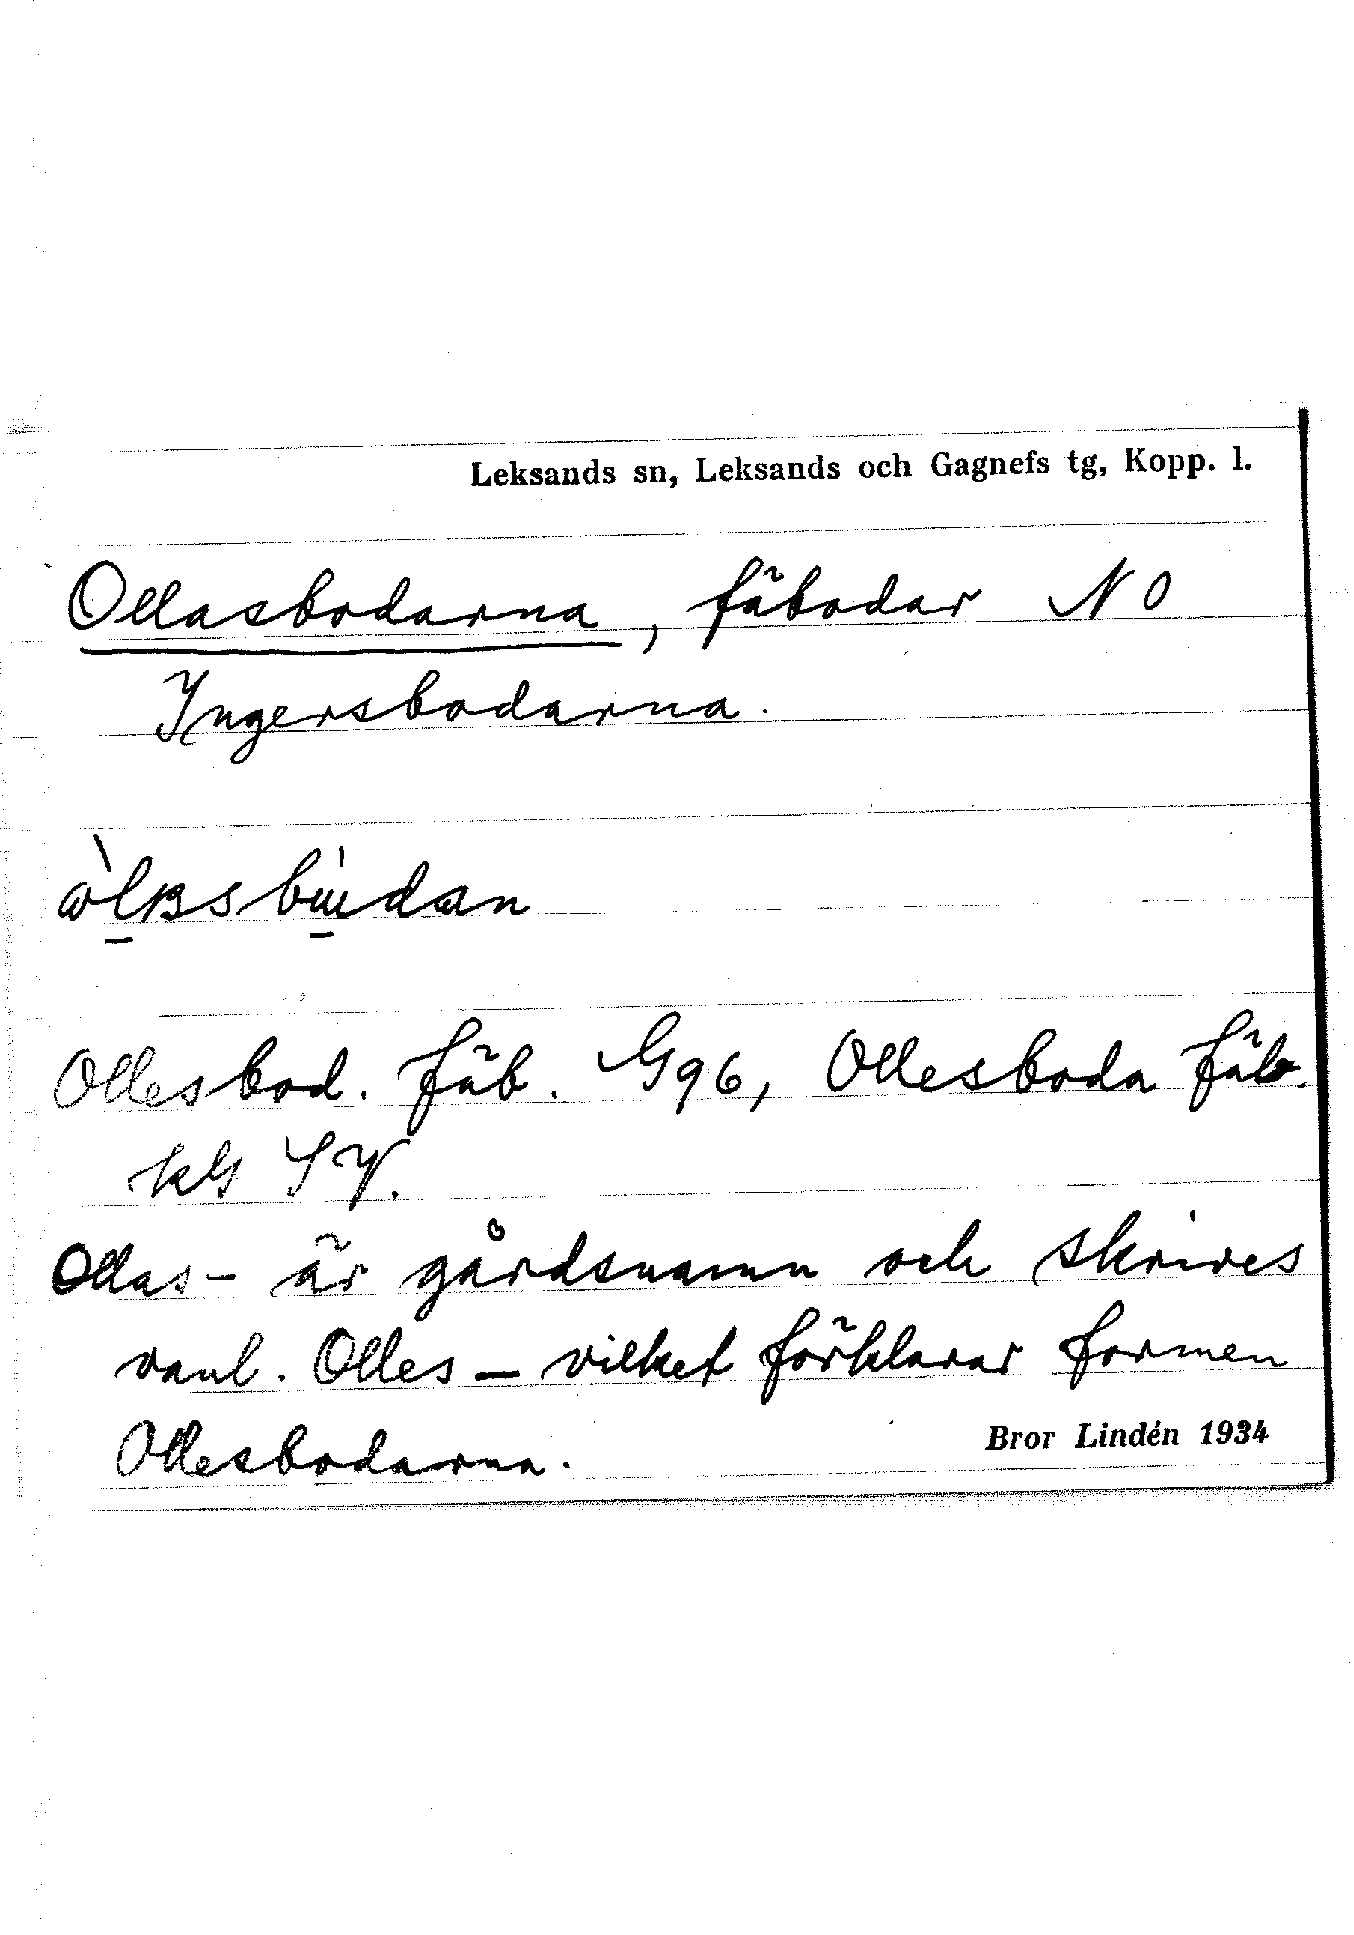 Leksands sn, Leksands och Gagnefs tg, Kopp. l.
Ollasbodarna, fäbodar NO
Ingersbodarna.
Ollesbod. fäb. G96, Ollesboda fäb.
kG SV.
Ollas- är gårdsnamn och skrives
vanl. Olles - vilket förklarar formen
Ollesbodarna.
Bror Lindén 1934